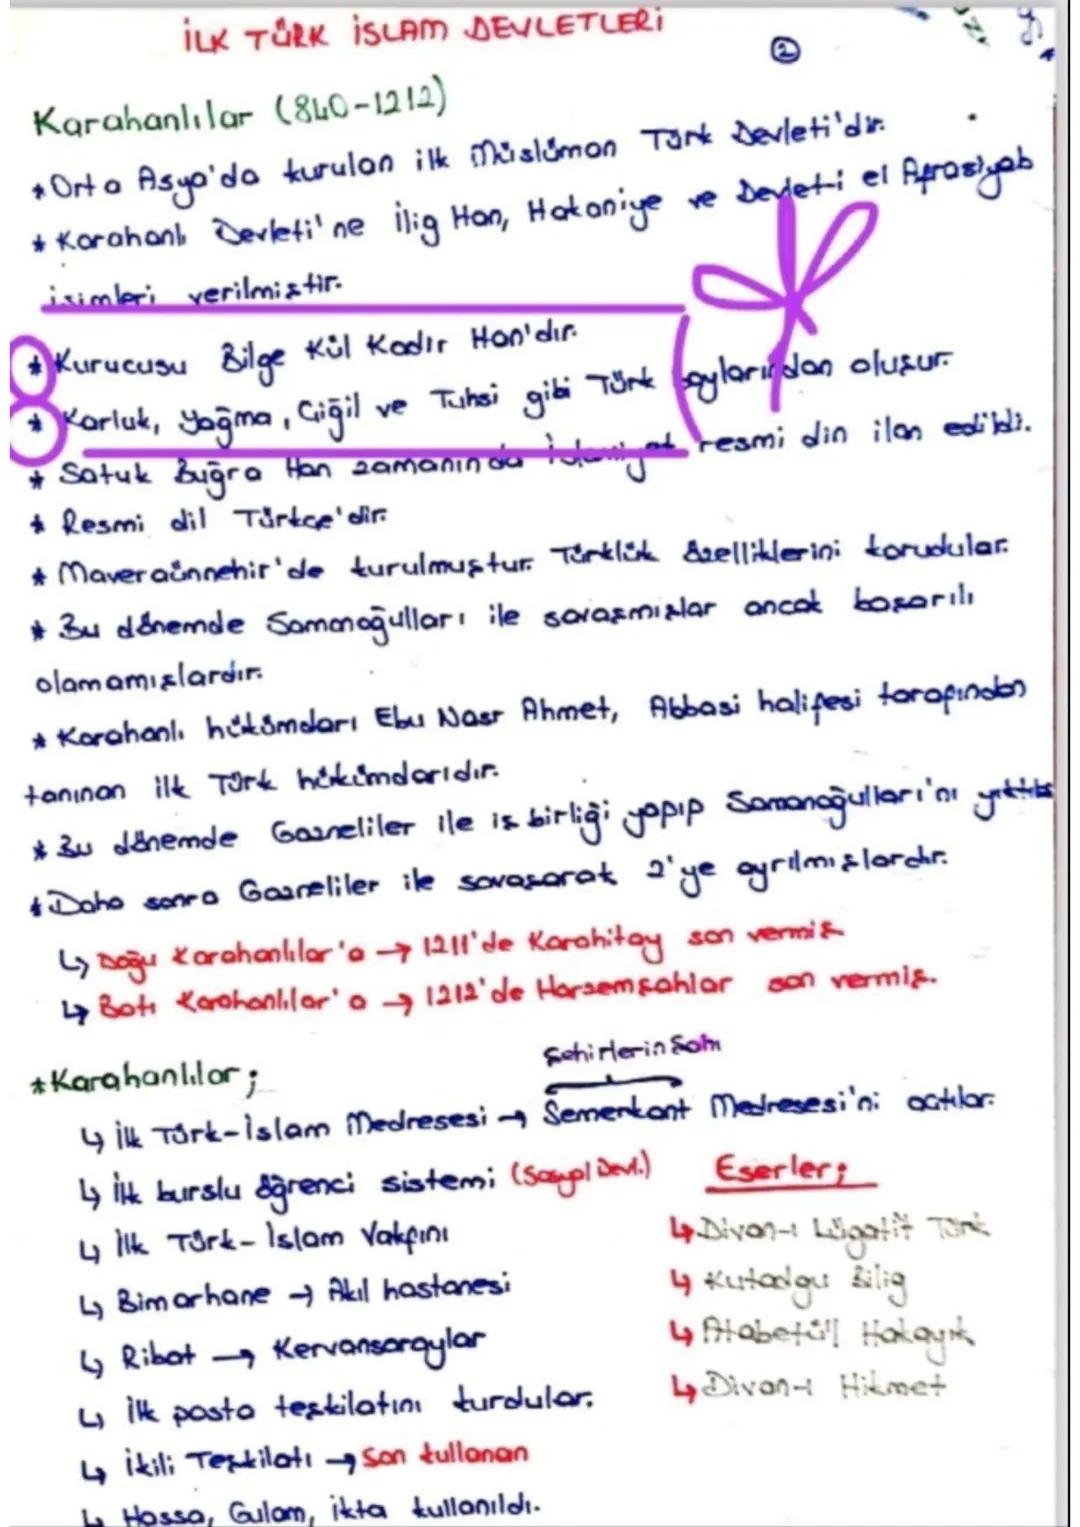 İLK TÜRK İSLAM DEVLETLERİ
2
Karahanlılar (840-1212)
* Orta Asya'da kurulan ilk Müslüman Türk Devleti'dir.
* Karahanlı Devleti'ne İlig Han, Hakaniye ve Devleti el Afrasiyab
isimleri verilmiştir.
* Kurucusu Bilge Kül Kadir Han'dır.
* Karluk, Yağma, Çiğil ve Tuhsi gibi Türk boylarından oluşur.
* Satuk Buğra Han zamanında İslamiyet resmi din ilan edildi.
* Resmi dil Türkçe'dir.
* Maveraünnehir'de kurulmuştur. Türklük özelliklerini korudular.
* Bu dönemde Samanoğulları ile savaşmışlar ancak başarılı
olamamışlardır.
* Karahanlı hükümdarı Ebu Nasr Ahmet, Abbasi halifesi tarafından
tanınan ilk Türk hükümdarıdır.
* Bu dönemde Gazneliler ile iş birliği yapıp Samanoğulları'nı yıktılar
* Daha sonra Gazneliler ile savaşarak 2'ye ayrılmışlardır.
↳ Doğu Karahanlılar'a → 1211'de Karahitay son vermiş
↳ Batı Karahanlılar'a → 1212'de Harzemşahlar son vermiş.
Şehirlerin Şahı
* Karahanlılar;
↳ İlk Türk-İslam Medresesi → Semerkant Medresesi'ni açtılar.
↳ İlk burslu öğrenci sistemi (Sosyal Devl.)
↳ İlk Türk-İslam Vakfını
↳ Bimarhane → Akıl hastanesi
↳ Ribat → Kervansaraylar
↳ İlk posta teşkilatını kurdular.
↳ İkili Teşkilatı → Son kullanan
↳ Hassa, Gulam, ikta kullanıldı.
Eserler;
↳ Divan-ı Lügatit Türk
↳ Kutadgu Bilig
↳ Atabetü'l Hakayık
↳ Divan-ı Hikmet